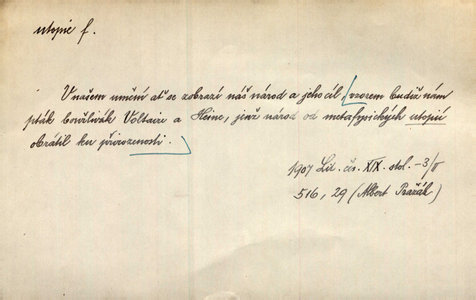 utopie f.
V našem umění ať se zobrazí náš národ a jeho cíl [vzorem budiž nám
pták Voltaire a Heine, jenž národ od metafysických utopií
obrátil ku přirozenosti.]
1907 Lit. čes. XIX. stol. -3/II
516, 29 (Albert Pražák)